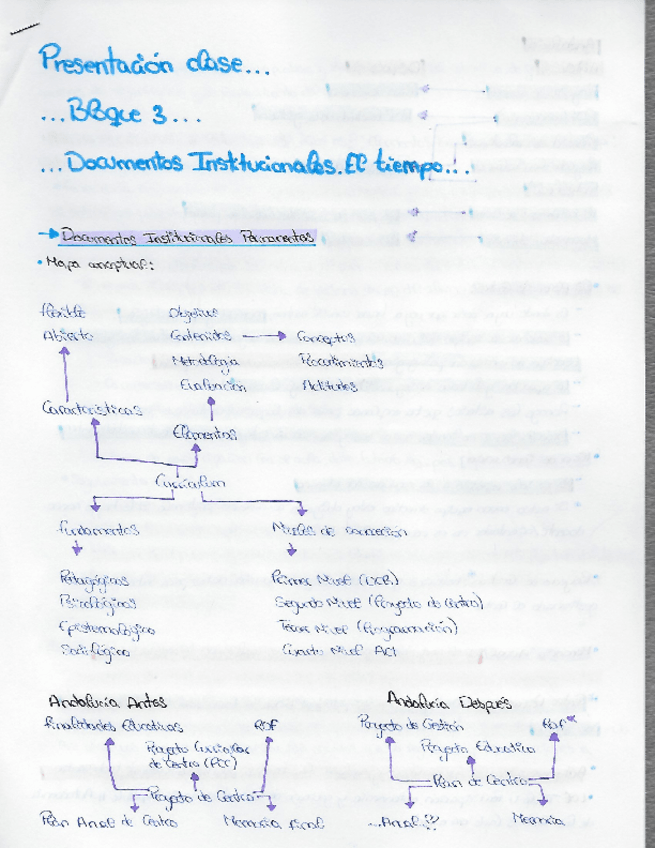 Presentación clase...
...Bloque 3...
...Documentos Institucionales. El tiempo...
→ Documentos Institucionales Permanentes
• Mapa conceptual:
flexible Objetivos
Abierto Contenidos → Conceptos
Metodología Procedimientos
Evaluación Actitudes
Características
Elementos
Curriculum
fundamentos Niveles de concreción
Pedagógicos Primer Nivel (DCB)
Psicológicos Segundo Nivel (Proyecto de Centro)
Epistemológico Tercer Nivel (Programación)
Sociológico Cuarto Nivel ACI
Andalucía Antes Andalucía Después
finalidades Educativas ROF Proyecto de Gestión ROF*
Proyecto Curricular Proyecto Educativo
de Centro (PCC)
Proyecto de Centro Plan de Centro
Plan Anual de Centro Memoria final ...Anual?? Memoria